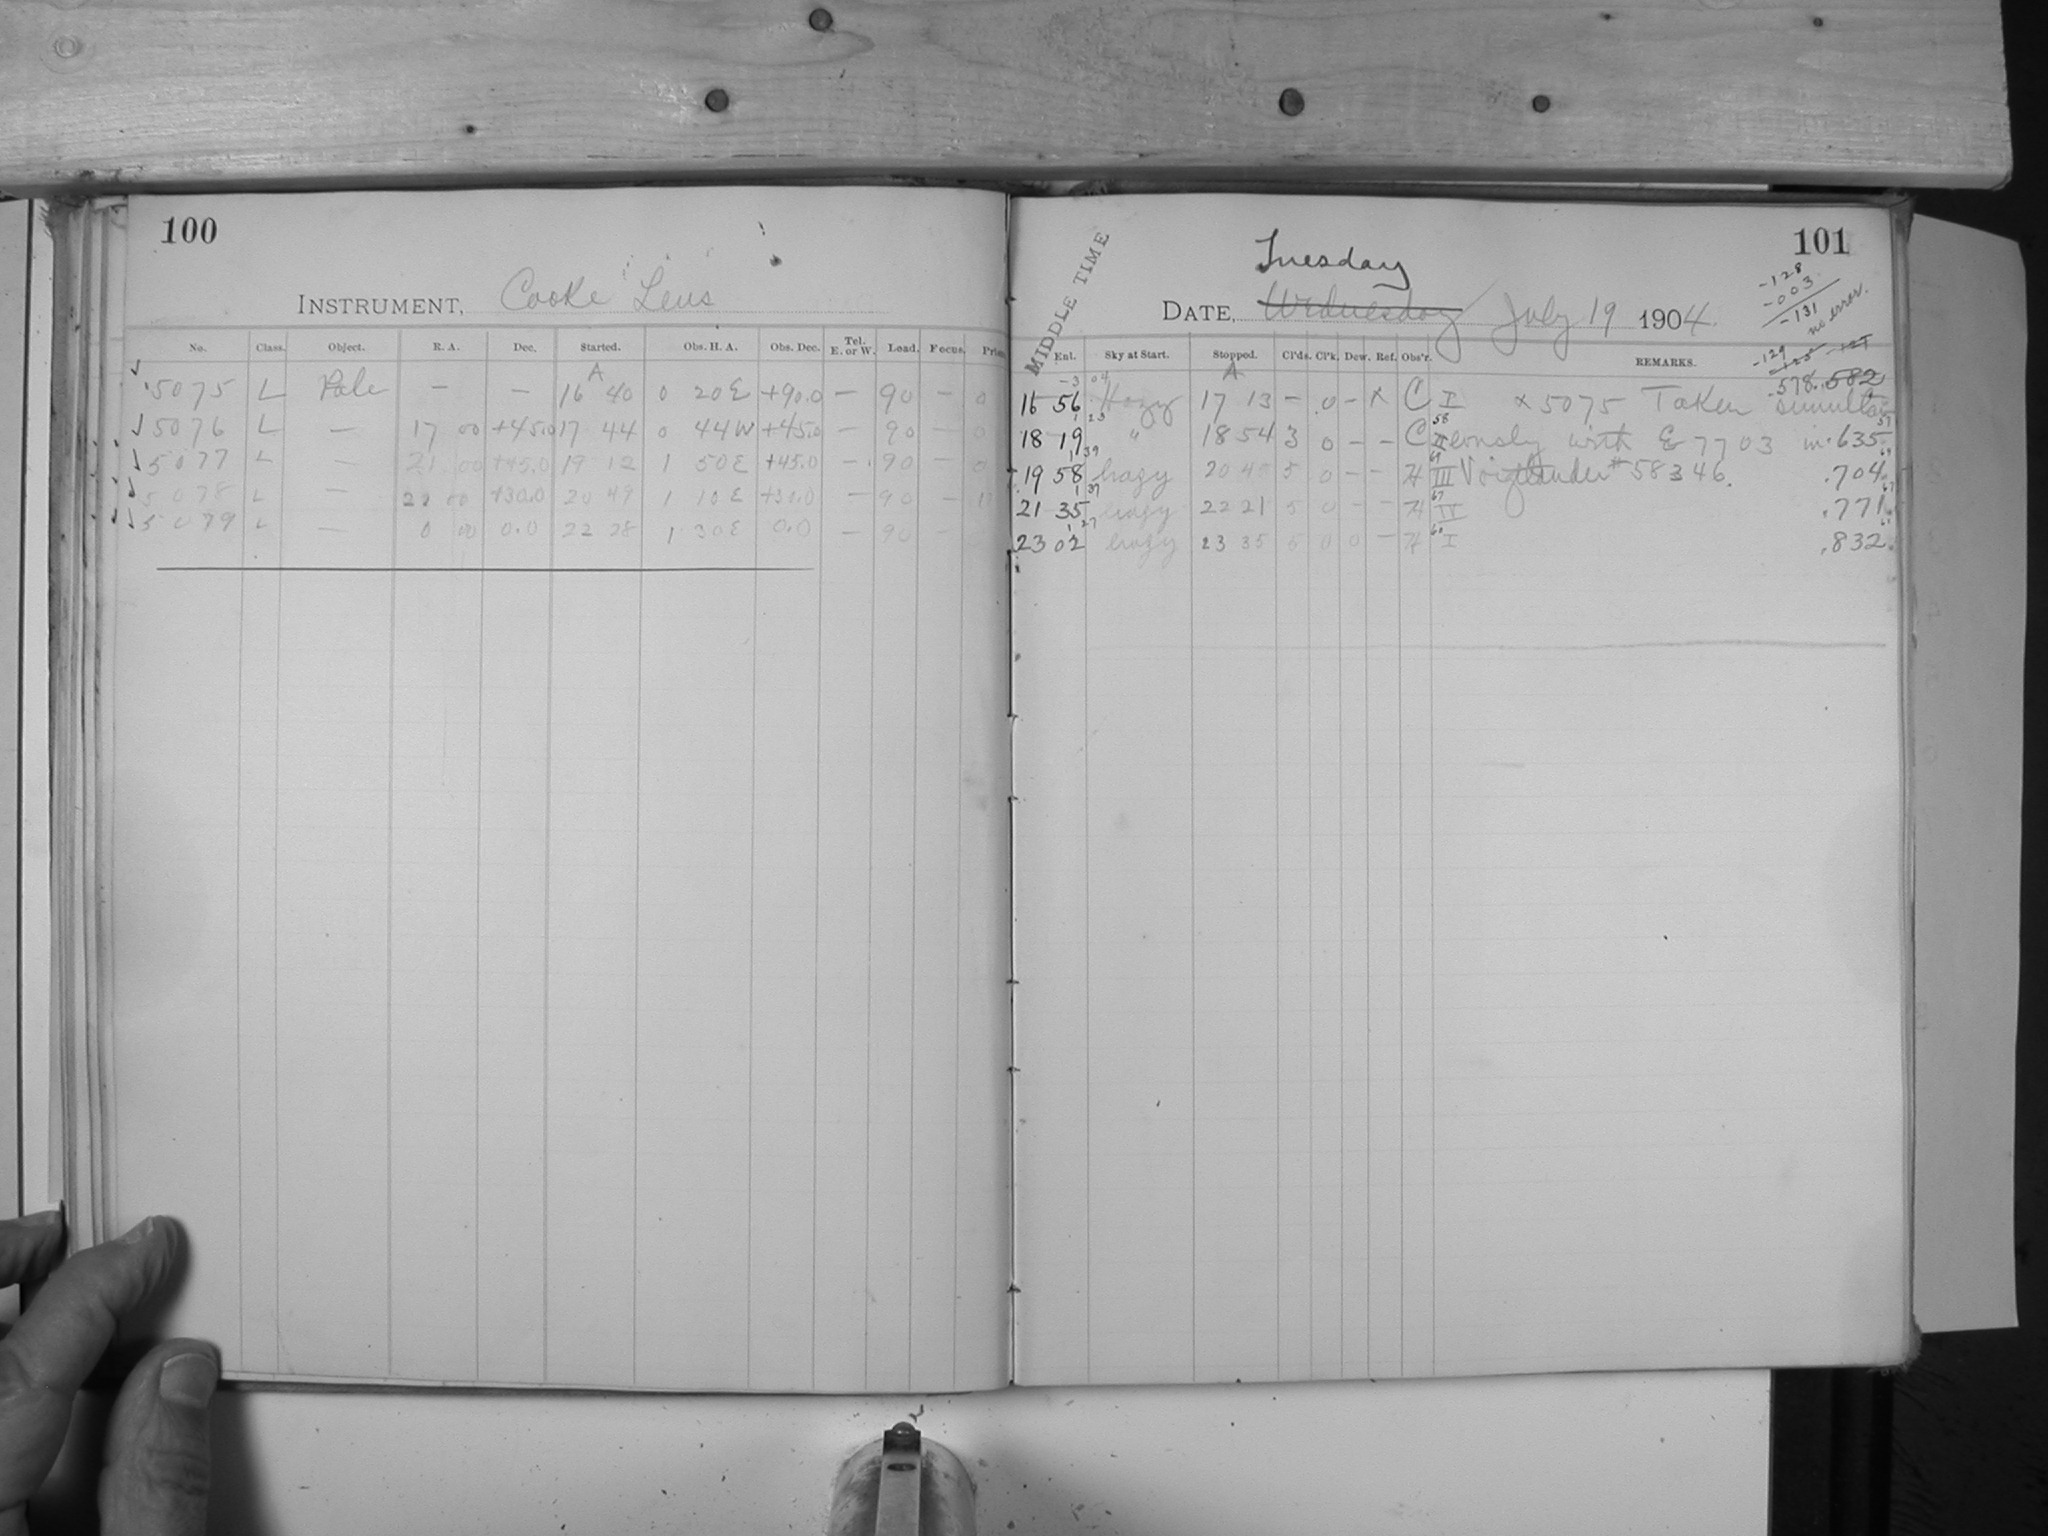 100
INSTRUMENT, Cooke Lens
No. Class. Object. R. A. Dec. Started. Obs. H. A. Obs. Dec. Tel. E. or W. Load. Focus.
A
5075 L Pole — — 16 40 0 20E +90.0 — 90 — 0
5076 L — 17 00 +45.0 17 44 0 44W +45.0 — 90 — 0
5077 L — 21 00 +45.0 19 12 1 50E +45.0 — 90 — 0
5078 L — 22 00 +30.0 20 49 1 10E +30.0 — 90 —
5079 L — 0 00 0.0 22 28 1 30E 0.0 — 90 —
101
MIDDLE TIME
Tuesday
DATE, Wednesday July 19 1904
-128
-003
-131
no error.
Enl. Sky at Start. Stopped. Cl'ds. Cl'k. Dew. Ref. Obs'r. REMARKS.
-129 -125 -127
A
-3 04 .578 .582
16 56 Hazy 17 13 — 0 — x C I x 5075 Taken simultan
1 23 58 57
18 19 " 18 54 3 0 — — C II eously with E 7703 in .635
1 39 69 69
19 58 hazy 20 45 5 0 — — H III Voigtlander # 58346. .704
1 37 67 67
21 35 hazy 22 21 5 0 — — H IV .771
1 27 61 61
23 02 hazy 23 35 5 0 0 — H I .832